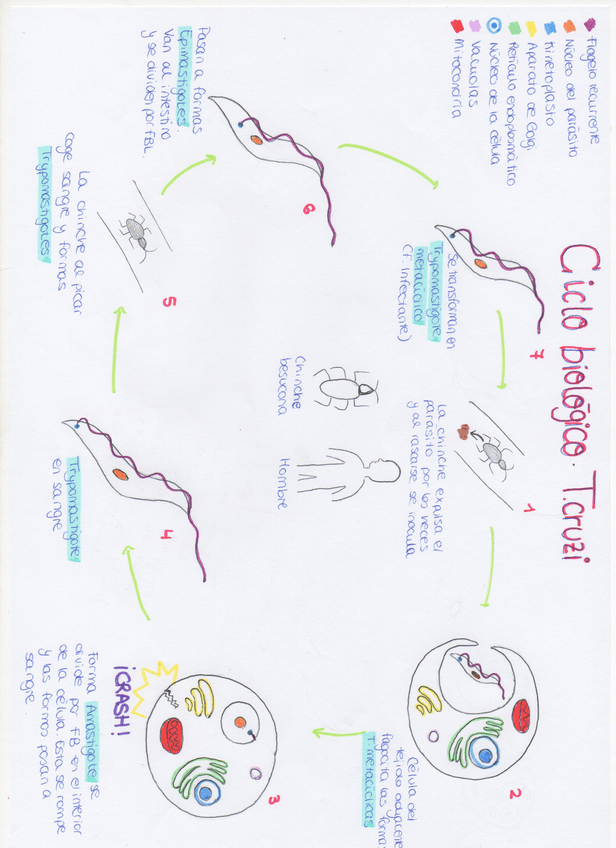 Ciclo biológico. T.cruzi
Flagelo recurrente
Núcleo del parásito
Kinetoplasto
Aparato de Golgi
Retículo endoplasmático
Núcleo de la célula
Vacuolas
Mitocondria
1
La chinche expulsa el
parásito por las heces
y al rascarse se inocula
2
Célula del
tejido adyacente
fagocita las formas
T. metacíclicas
3
Forma Amastigote se
divide por FB en el interior
de la célula. Esta se rompe
y las formas pasan a
sangre
¡CRASH!
4
Trypomastigote
en sangre
5
La chinche al picar
coge sangre y formas
Trypomastigotes
6
Pasan a formas
Epimastigotes.
Van al intestino
y se dividen por FBL.
7
Se transforman en
Trypomastigote
metacíclico
(F. Infectante)
Chinche
besucona
Hombre